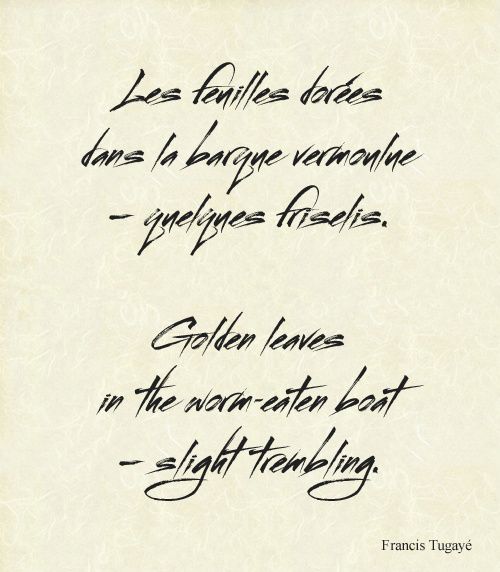 Les feuilles dorées
dans la barque vermoulue
– quelques friselis.
Golden leaves
in the worm-eaten boat
– slight trembling.
Francis Tugayé